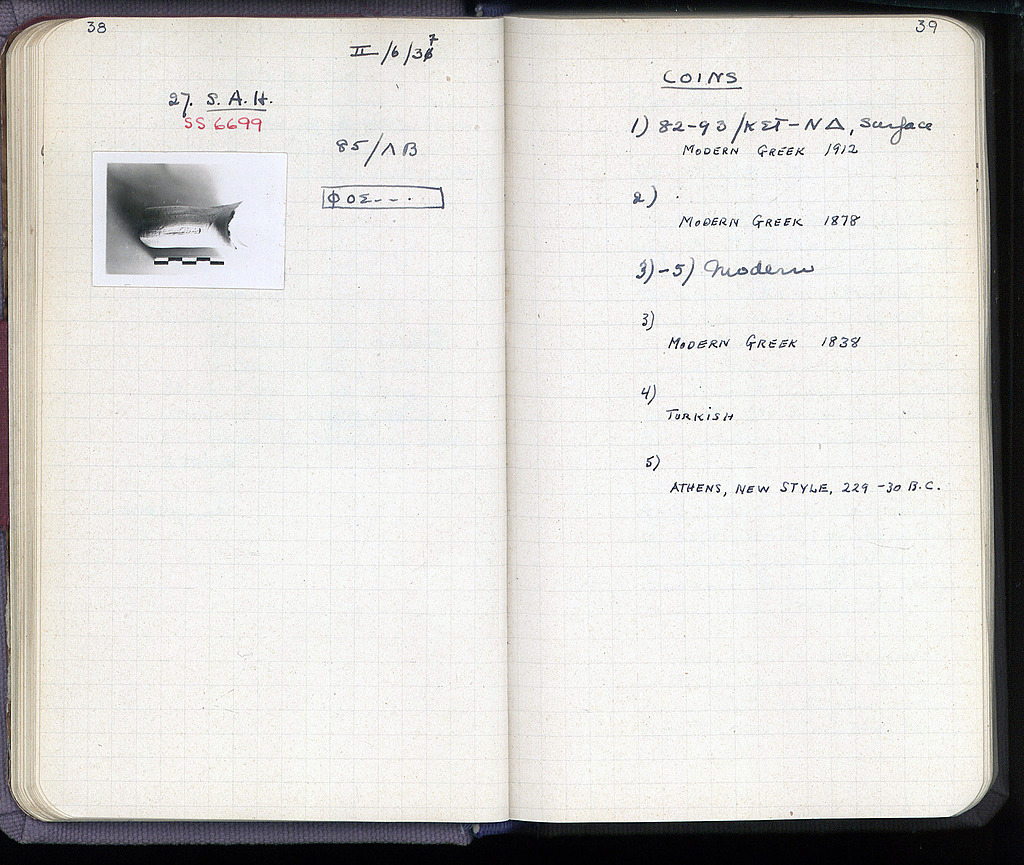 38
II/6/37
27. S.A.H.
SS 6699
85/ΛΒ
ΦΟΣ--·
39
COINS
1) 82-93/ΚΣΤ-ΝΔ, Surface
MODERN GREEK 1912
2)
MODERN GREEK 1878
3)-5) Modern
3)
MODERN GREEK 1838
4)
TURKISH
5)
ATHENS, NEW STYLE, 229-30 B.C.